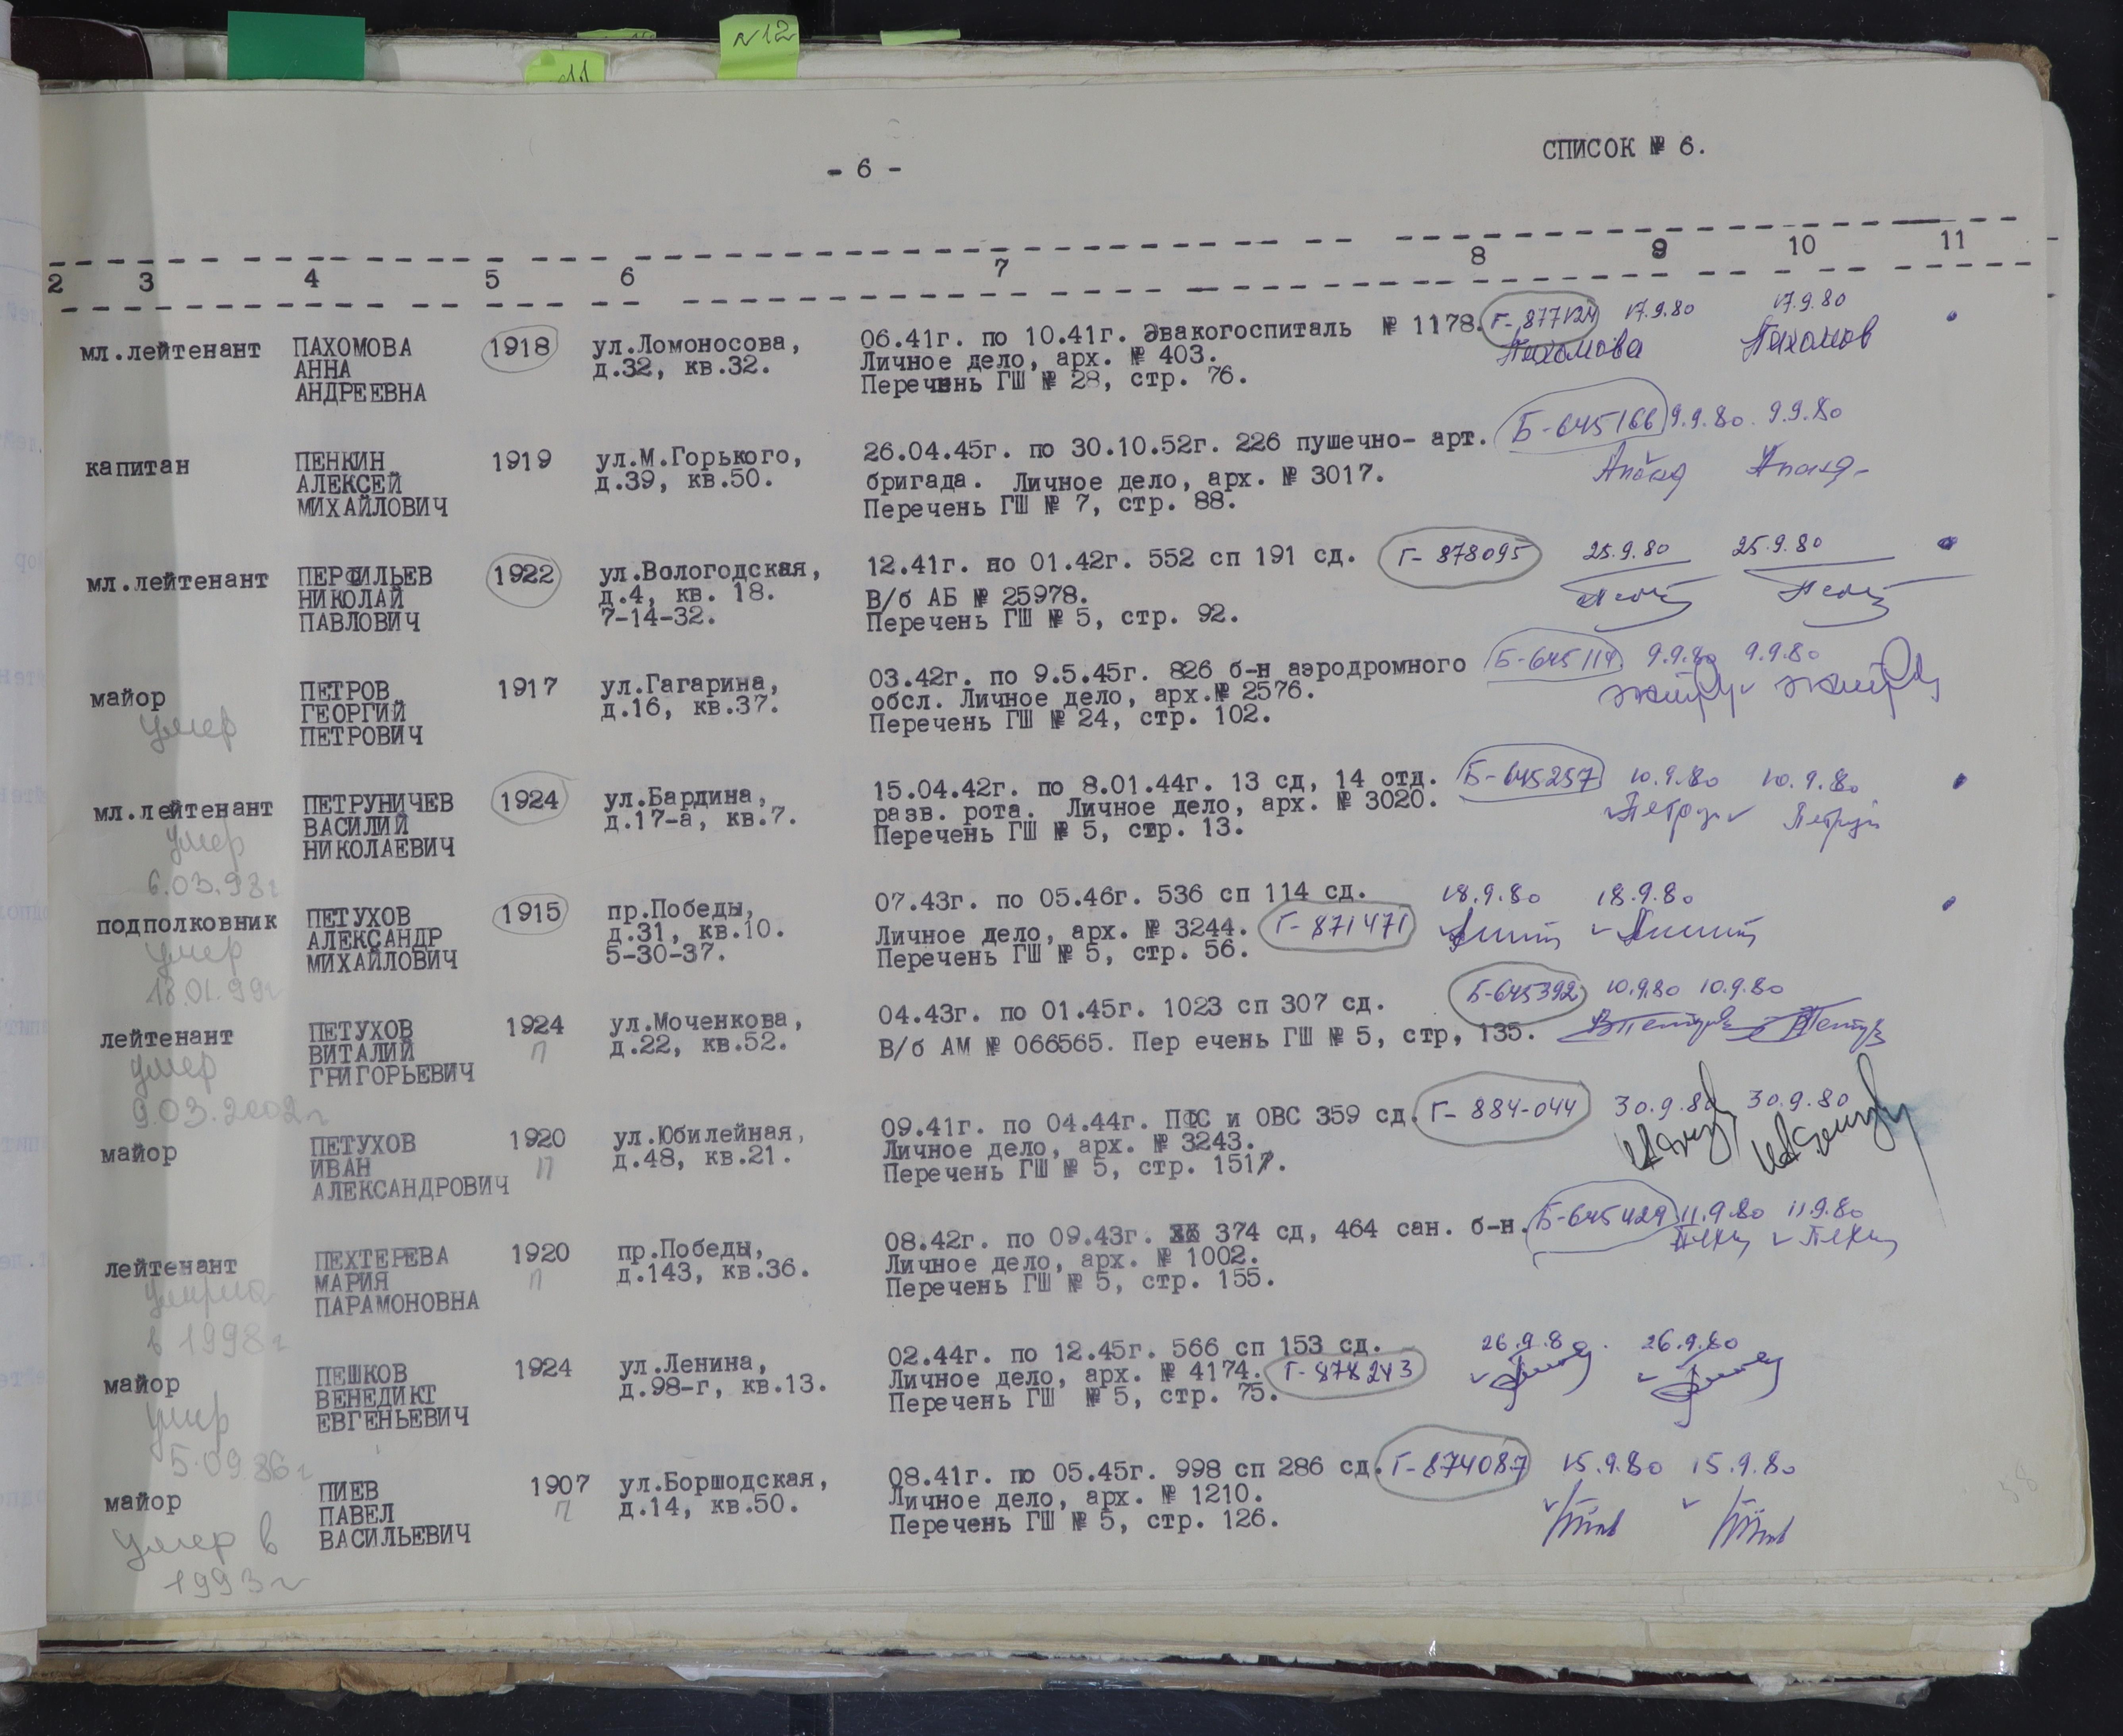 №12
11
СПИСОК № 6.
- 6 -
2 3 4 5 6 7 8 9 10 11
мл.лейтенант ПАХОМОВА 1918 ул.Ломоносова, 06.41г. по 10.41г. Эвакогоспиталь № 1178. Г-877124 17.9.80 17.9.80
АННА д.32, кв.32. Личное дело, арх. № 403. Пахомова Пахомов
АНДРЕЕВНА Перечень ГШ № 28, стр. 76.
капитан ПЕНКИН 1919 ул.М.Горького, 26.04.45г. по 30.10.52г. 226 пушечно- арт. Б-645166 9.9.80. 9.9.80
АЛЕКСЕЙ д.39, кв.50. бригада. Личное дело, арх. № 3017.
МИХАЙЛОВИЧ Перечень ГШ № 7, стр. 88.
мл.лейтенант ПЕРФИЛЬЕВ 1922 ул.Вологодская, 12.41г. по 01.42г. 552 сп 191 сд. Г- 878095 25.9.80 25.9.80
НИКОЛАЙ д.4, кв. 18. В/б АБ № 25978.
ПАВЛОВИЧ 7-14-32. Перечень ГШ № 5, стр. 92.
майор ПЕТРОВ 1917 ул.Гагарина, 03.42г. по 9.5.45г. 826 б-н аэродромного Б-645119 9.9.80 9.9.80
умер ГЕОРГИЙ д.16, кв.37. обсл. Личное дело, арх.№ 2576.
ПЕТРОВИЧ Перечень ГШ № 24, стр. 102.
мл.лейтенант ПЕТРУНИЧЕВ 1924 ул.Бардина, 15.04.42г. по 8.01.44г. 13 сд, 14 отд. Б-645257 10.9.80 10.9.80
умер ВАСИЛИЙ д.17-а, кв.7. разв. рота. Личное дело, арх. № 3020.
6.03.98г НИКОЛАЕВИЧ Перечень ГШ № 5, стр. 13.
подполковник ПЕТУХОВ 1915 пр.Победы, 07.43г. по 05.46г. 536 сп 114 сд. 18.9.80 18.9.80
умер АЛЕКСАНДР д.31, кв.10. Личное дело, арх. № 3244. Г-871471
18.01.99г МИХАЙЛОВИЧ 5-30-37. Перечень ГШ № 5, стр. 56.
лейтенант ПЕТУХОВ 1924 ул.Моченкова, 04.43г. по 01.45г. 1023 сп 307 сд. Б-645392 10.9.80 10.9.80
умер ВИТАЛИЙ П д.22, кв.52. В/б АМ № 066565. Пер ечень ГШ № 5, стр, 135.
9.03.2002г ГРИГОРЬЕВИЧ
майор ПЕТУХОВ 1920 ул.Юбилейная, 09.41г. по 04.44г. ПФС и ОВС 359 сд. Г- 884-044 30.9.80 30.9.80
ИВАН П д.48, кв.21. Личное дело, арх. № 3243.
АЛЕКСАНДРОВИЧ Перечень ГШ № 5, стр. 1517.
лейтенант ПЕХТЕРЕВА 1920 пр.Победы, 08.42г. по 09.43г. 374 сд, 464 сан. б-н. Б-645429 11.9.80 11.9.80
умерла МАРИЯ П д.143, кв.36. Личное дело, арх. № 1002.
в 1998г ПАРАМОНОВНА Перечень ГШ № 5, стр. 155.
майор ПЕШКОВ 1924 ул.Ленина, 02.44г. по 12.45г. 566 сп 153 сд. 26.9.80. 26.9.80
умер ВЕНЕДИКТ д.98-г, кв.13. Личное дело, арх. № 4174. Г-878243
5.09 86г ЕВГЕНЬЕВИЧ Перечень ГШ № 5, стр. 75.
майор ПИЕВ 1907 ул.Боршодская, 08.41г. по 05.45г. 998 сп 286 сд. Г-874087 15.9.80 15.9.80
умер в ПАВЕЛ П д.14, кв.50. Личное дело, арх. № 1210.
1993г ВАСИЛЬЕВИЧ Перечень ГШ № 5, стр. 126.